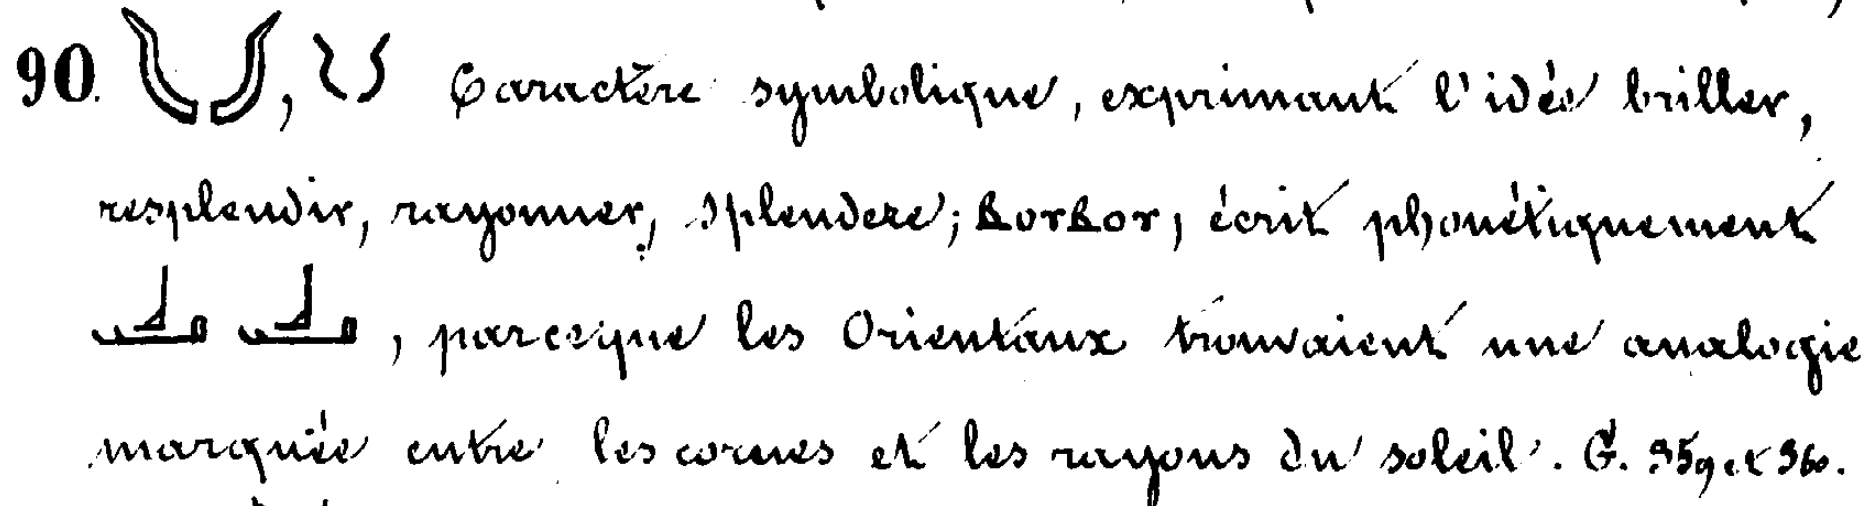 90. , Caractère symbolique, exprimant l'idée briller,
resplendir, rayonner, splendere; ⲃⲟⲣⲃⲟⲣ, écrit phonétiquement
, parceque les Orientaux trouvaient une analogie
marquée entre les cornes et les rayons du soleil. G. 359 et 360.